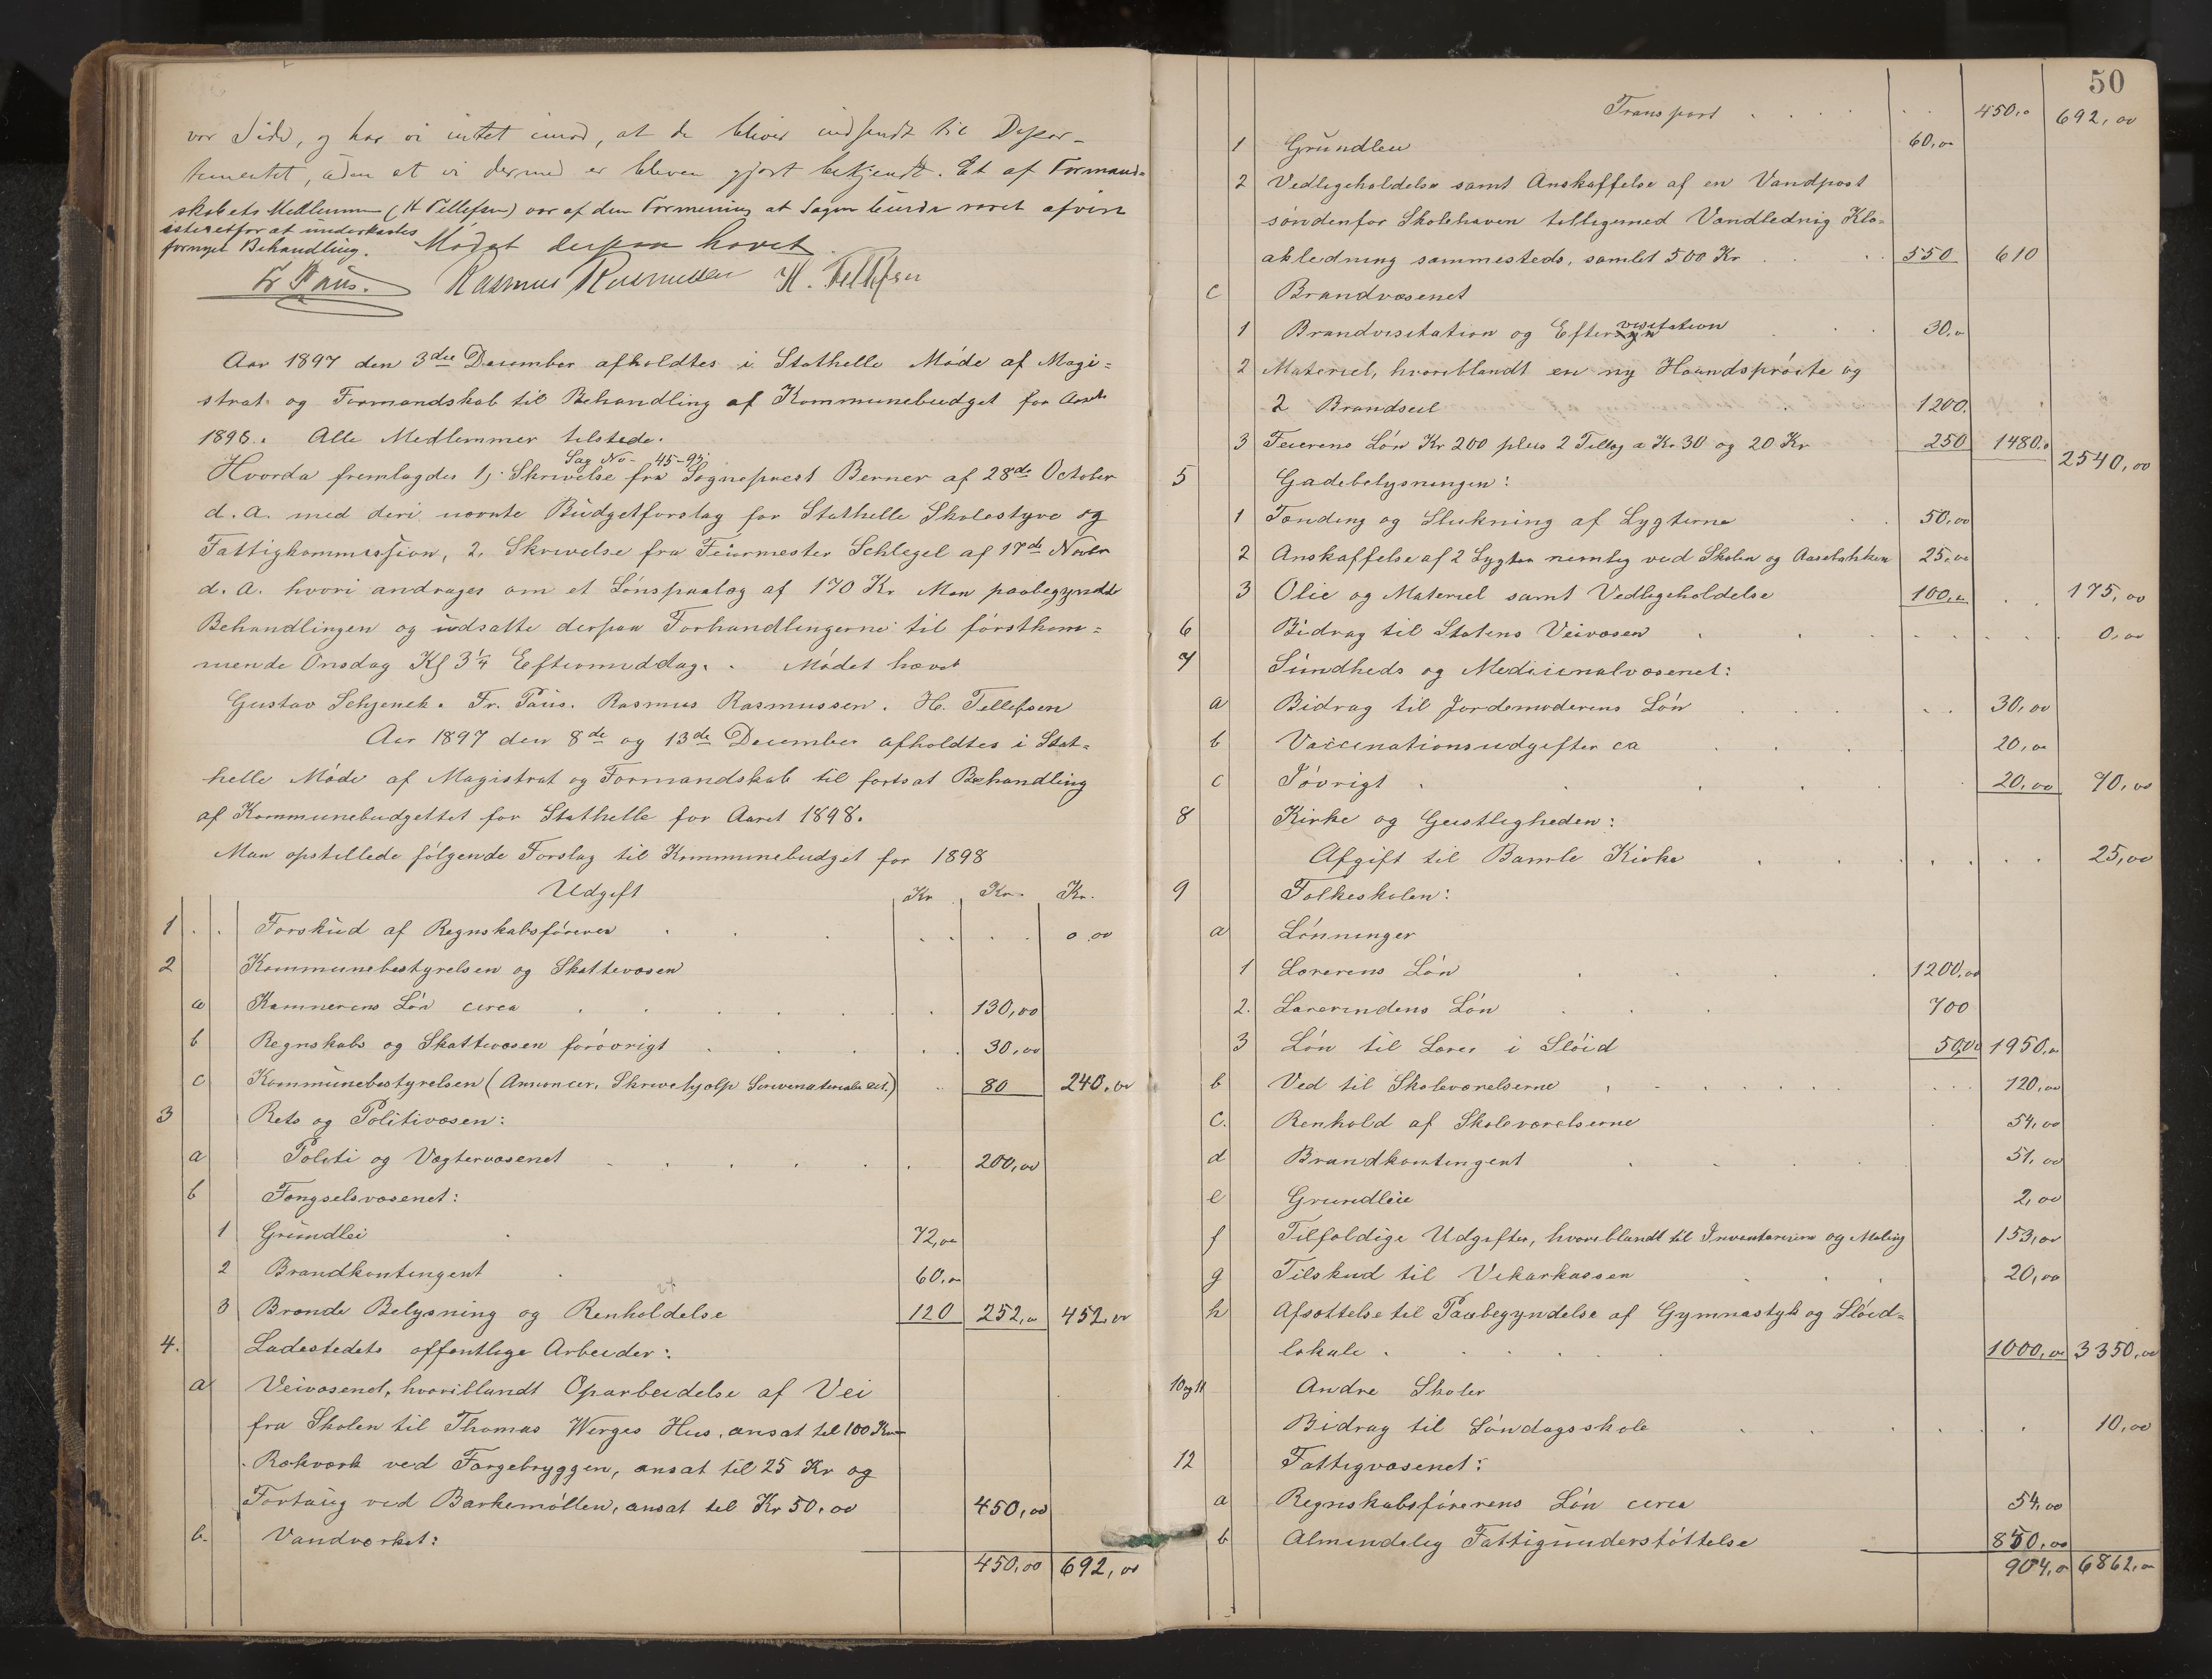 vor Side, og har vi intet imod, at de bliver indsendt til Depar-
tementet, uden at vi dermed er bleven gjort bekjendt. Et af Formand-
skabets Medlemmer (H Tellefsen) var af den Formening at Sagen burde været afvist
isteretfor at underkastes
fornyet Behandling. Mødet derpaa hævet.
Fr Paus. Rasmus Rasmussen H. Tellefsen
Aar 1897 den 3die December afholdtes i Stathelle Møde af Magi=
strat og Formandskab til Behandling af Kommunebudget for Aaret
1898. Alle Medlemmer tilstede.
Sag No 45-95.
Hvorda fremlagdes 1, Skrivelse fra Sognepræst Berner af 28de October
d. A. med deri nævnte Budgetforslag for Stathelle Skolestyre og
Fattigkommission, 2, Skrivelse fra Feiermester Schlegel af 17de Novbr
d. A. hvori andrages om et Lønspaalæg af 170 Kr. Man paabegyndte
Behandlingen og udsatte derpaa Forhandlingerne til førstkom=
mende Onsdag Kl 3 1/4 Eftermiddag. Mødet hævet
Gustav Schjenck. Fr. Paus. Rasmus Rasmussen. H. Tellefsen
Aar 1897 den 8de og 13de December afholdtes i Stat=
helle Møde af Magistrat og Formandskab til fortsat Behandling
af Kommunebudgettet for Stathelle for Aaret 1898.
Man opstillede følgende Forslag til Kommunebudget for 1898
Udgift Kr Kr. Kr.
1 Forskud af Regnskabsfører 0.00
2 Kommunebestyrelsen og Skattevæsen
a Kæmnerens Løn circa 130,00
b Regnskabs og Skattevæsen forøvrigt 30,00
c Kommunebestyrelsen (Annoncer, Skrivehjælp Skrivematerialer etc.) 80 240,00
3 Rets og Politivæsen:
a Politi og Vægtervæsenet 200,00
b Fængselsvæsenet:
1 Grundlei 72,00
2 Brandkontingent 60,00
3 Brænde Belysning og Renholdelse 120 252,00 452,00
4. Ladestedets offentlige Arbeider:
a Veivæsenet, hvoriblandt Oparbeidelse af Vei
fra Skolen til Thomas Werges Hus, ansat til 100 Kr
Rækværk ved Færgebryggen, ansat til 25 Kr og
Fortaug ved Barkemøllen, ansat til Kr 50,00 450,00
b. Vandværket:
450,00 692,00
50
Transport 450,00 692,00
1 Grundleie 60,00
2 Vedligeholdelse samt Anskaffelse af en Vandpost
søndenfor Skolehaven tilligemed Vandlednig Klo=
akledning sammesteds, samlet 500 Kr 550 610
c Brandvæsenet
1 Brandvisitation og Eftervisitation 30,00
2 Materiel, hvoriblandt en ny Haandsprøite og
2 Brandseil 1200.
3 Feierens Løn Kr 200 plus 2 Tillæg a Kr 30 og 20 Kr 250 1480.0 2540,00
5 Gadebelysningen:
1 Tænding og Slukning af Lygterne 50,00
2 Anskaffelse af 2 Lygter nemlig ved Skolen og Aasebakken 25,00
3 Olie og Materiel samt Vedligeholdelse 100,00 175,00
6 Bidrag til Statens Veivæsen 0,00
7 Sundheds og Medicinalvæsenet:
a Bidrag til Jordemoderens Løn 30,00
b Vaccinationsudgifter ca 20,00
c Iøvrigt 20,00 70,00
8 Kirke og Geistligheden:
Afgift til Bamle Kirke 25,00
9 Folkeskolen:
a Lønninger
1 Lærerens Løn 1200,00
2. Lærerindens Løn 700
3 Løn til Lærer i Sløid 50,00 1950,00
b Ved til Skoleværelserne 120,00
c. Renhold af Skoleværelserne 54,00
d Brandkontingent 51,00
e Grundleie 2,00
f Tilfældige Udgifter, hvoriblandt til Inventarium og Maling 153,00
g Tilskud til Vikarkassen 20,00
h Afsættelse til Paabegyndelse af Gymnastyk og Sløid=
lokale 1000,00 3350,00
10 og 11 Andre Skoler
Bidrag til Søndagsskole 10,00
12 Fattigvæsenet:
a Regnskabsførerens Løn circa 54,00
b Almindelig Fattigunderstøttelse 850,00
904,00 6862,00